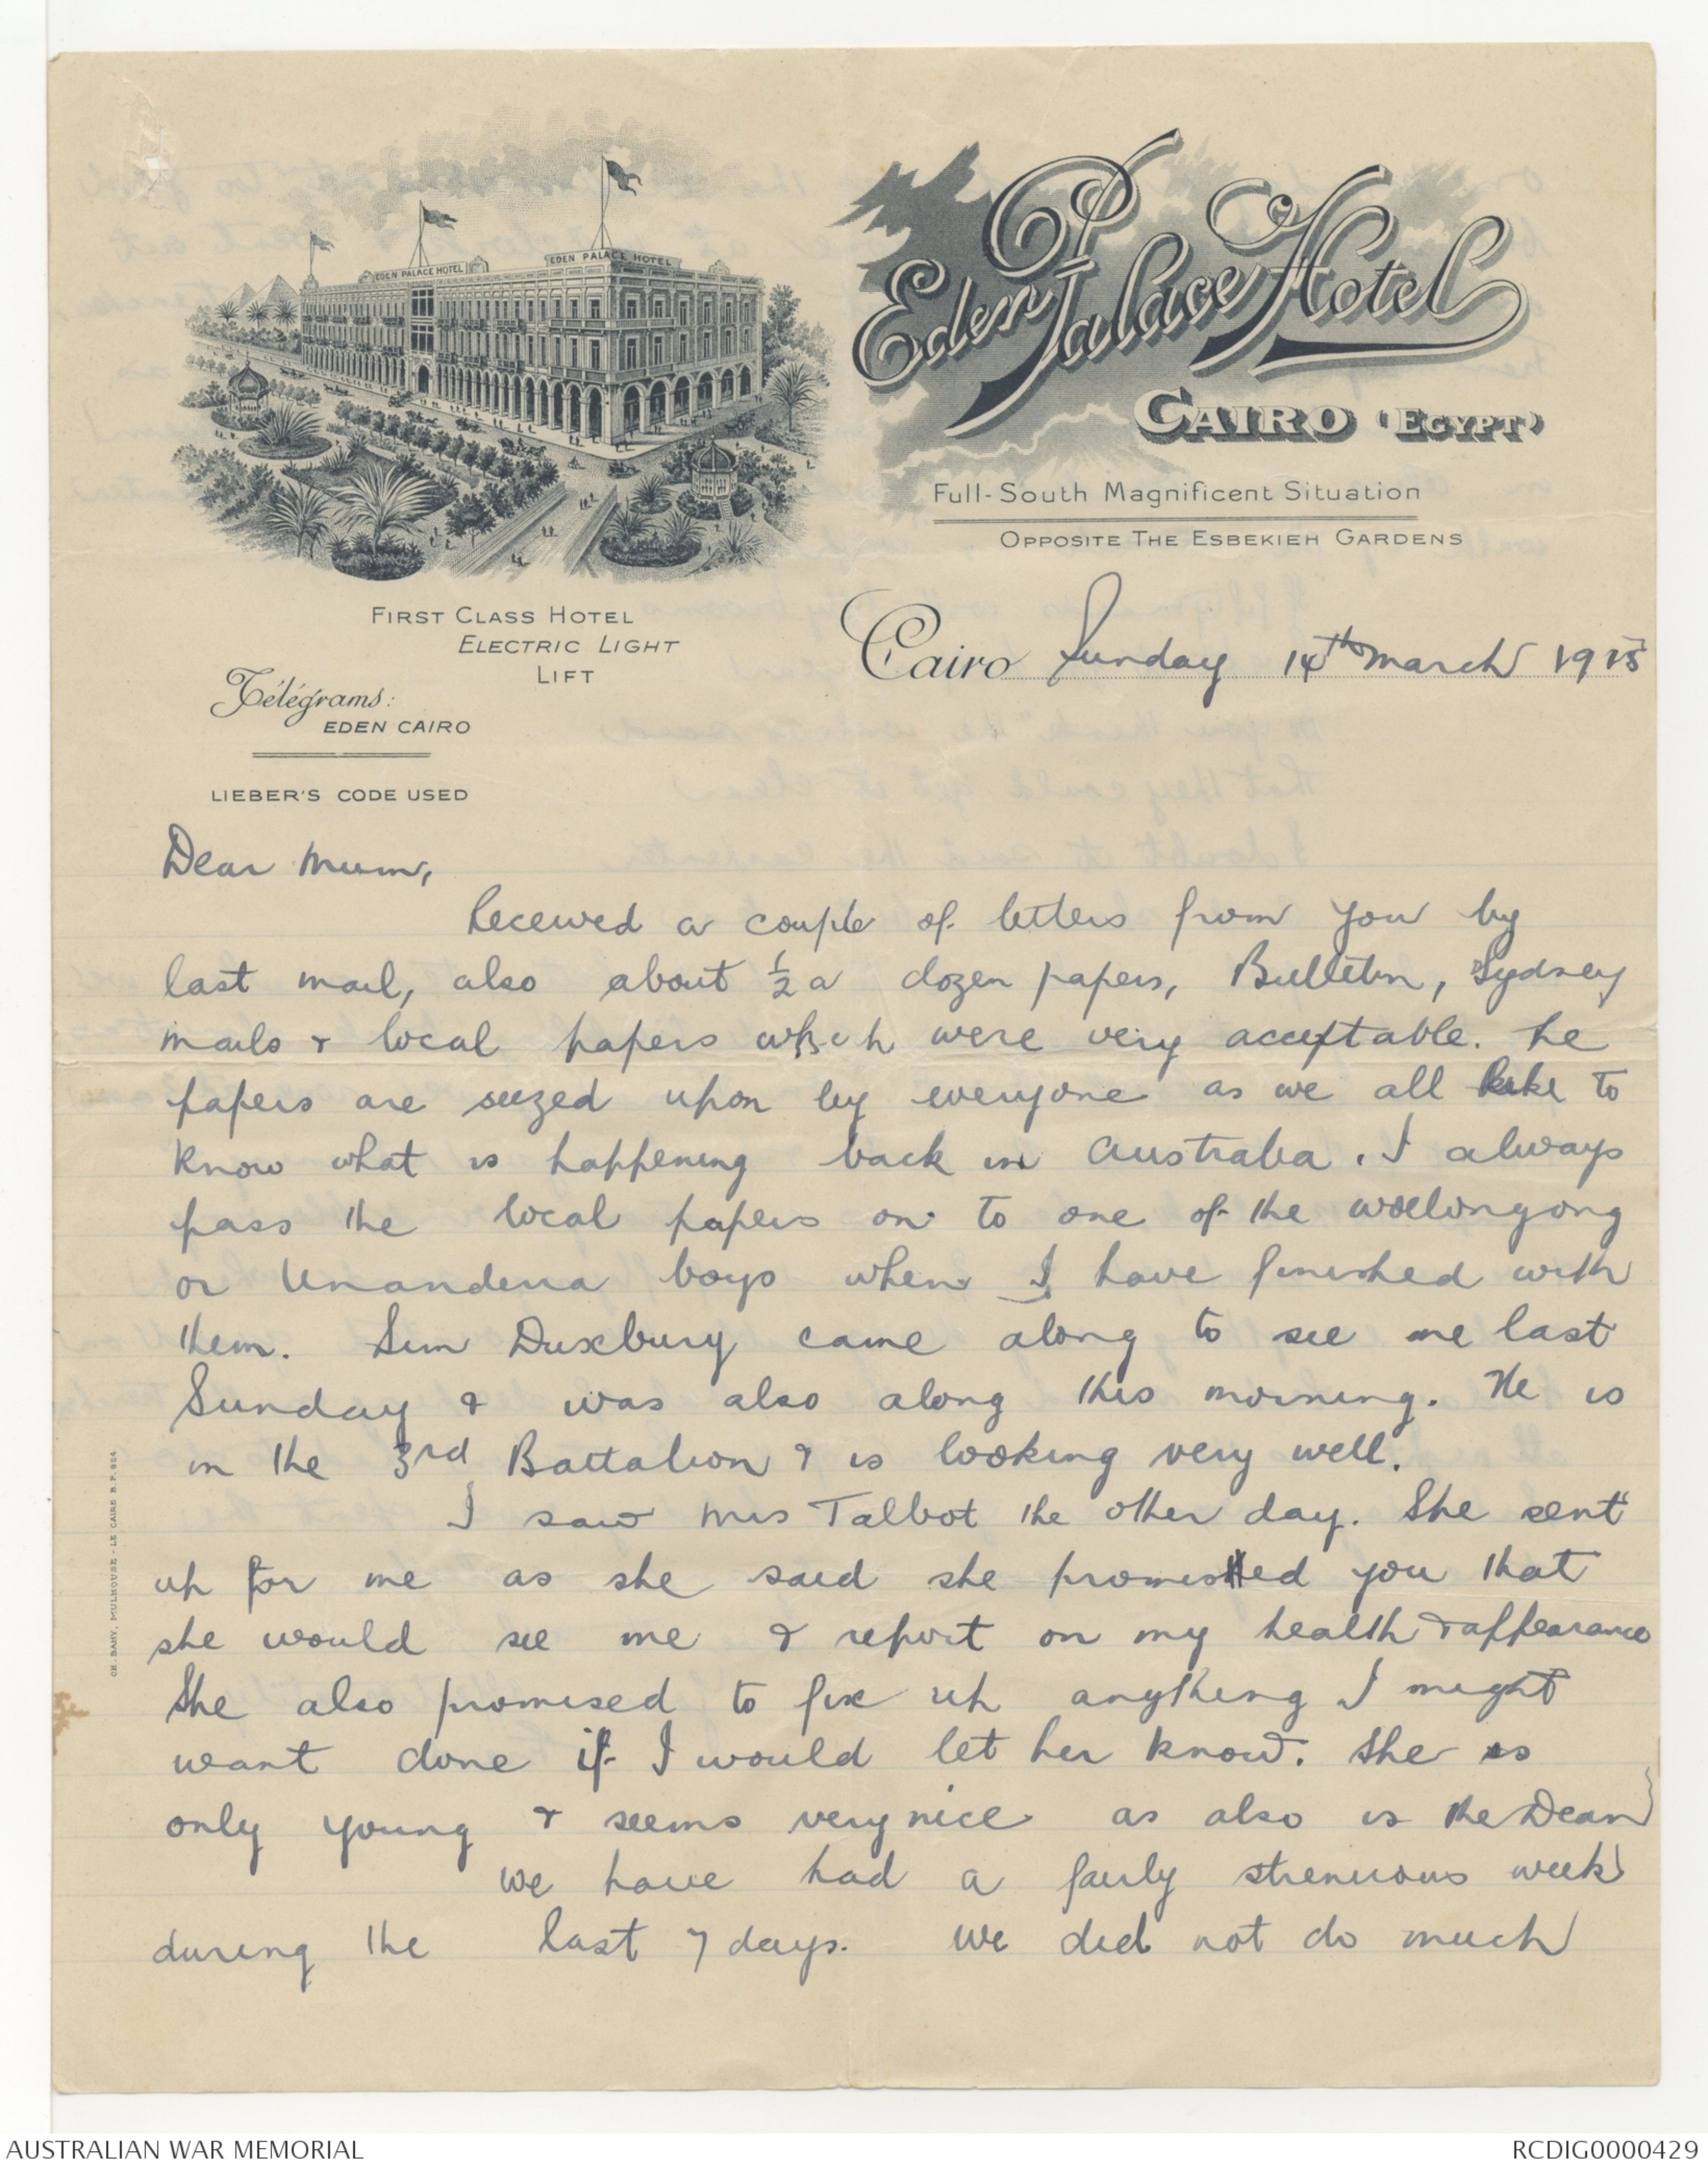 EDEN PALACE HOTEL
EDEN PALACE HOTEL
Eden Palace Hotel
CAIRO (EGYPT)
Full-South Magnificent Situation
OPPOSITE THE ESBEKIEH GARDENS
FIRST CLASS HOTEL
ELECTRIC LIGHT
LIFT
Télégrams:
EDEN CAIRO
LIEBER'S CODE USED
Cairo Sunday 14th March 1915
Dear Mum,
Received a couple of letters from you by
last mail, also about ½ a dozen papers, Bulletin, Sydney
mails & local papers which were very acceptable. The
papers are seized upon by everyone as we all like to
know what is happening back in Australia. I always
pass the local papers on to one of the Woollongong
or Unanderra boys when I have finished with
them. Sim Duxbury came along to see me last
Sunday & was also along this morning. He is
in the 3rd Battalion & is looking very well.
I saw Mrs Talbot the other day. She sent
up for me as she said she promised you that
she would see me & report on my health & appearance
She also promised to fix up anything I might
want done if I would let her know. She is
only young & seems very nice as also is the Dean
We have had a fairly strenuous week
during the last 7 days. We did not do much
CH. BAHY, MULHOUSE - LE CAIRE B.P. 904
AUSTRALIAN WAR MEMORIAL
RCDIG0000429